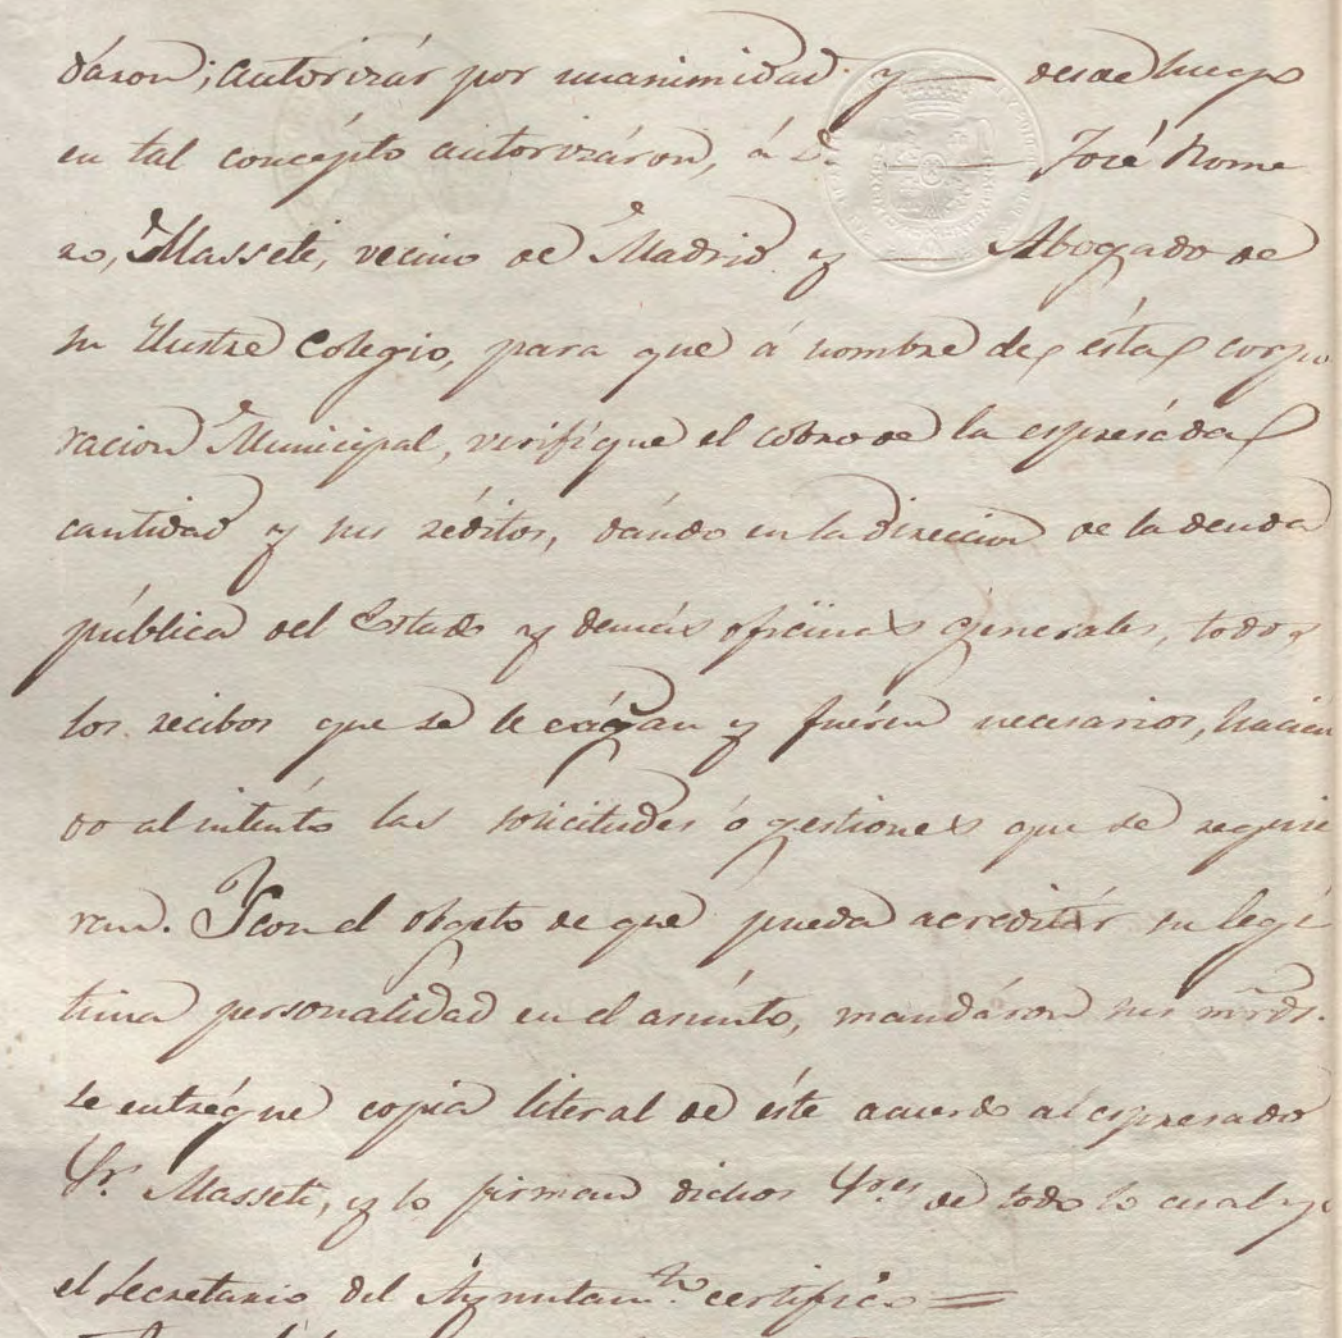 dáron; autorizár por unanimidad y — desde luego
en tal concépto autorizáron, á D. — José Rome
ro, Masseti, vecino de Madrid y — Abogado de
su Ilustre Colegio, para que á nombre de ésta corpo
racion Municipal, verifíque el cobro de la espresáda
cantidad y sus réditos, dándo en la direccion de la deuda
pública del Estado y demás oficinas generales, todos
los recibos que se le exígan y fuéren necesarios, hacien
do al inténto las solicitudes ó gestiones que se requie
ran. Y con el objeto de que pueda acreditár su legí
tima personalidad en el asúnto, mandáron sus mrds.
se entrégue copia literal de éste acuerdo al espresado
Sr. Masseti, y lo firman dichos Sres. de todo lo cual yo
el Secretario del Ayuntamto. certifico =